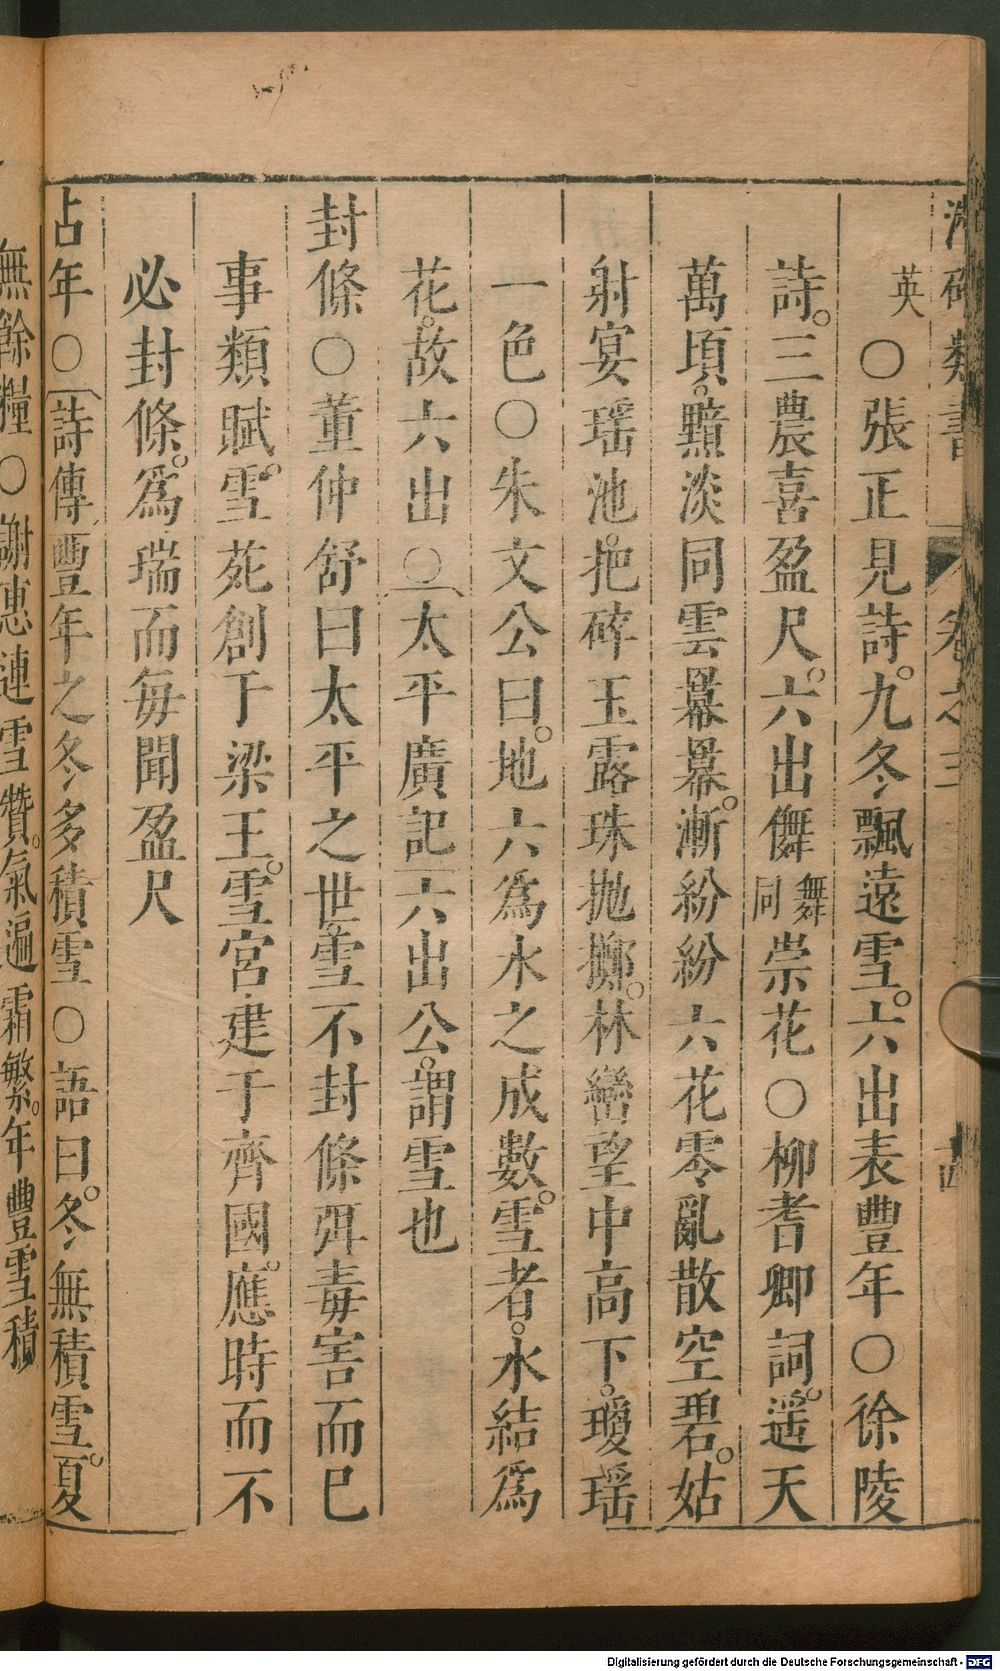 類書 卷之三 十四
英 〇張正見詩。九冬飄遠雪。六出表豐年〇徐陵
詩。三農喜盈尺。六出儛舞同崇花〇柳耆卿詞。遥天
萬頃。黯淡同雲羃羃。漸紛紛六花零亂散空碧。姑
射宴瑶池。把碎玉露珠拋擲。林巒望中高下。瓊瑶
一色〇朱文公曰。地六爲水之成數。雪者。水結爲
花。故六出〇太平廣記六出公。謂雪也
封條〇董仲舒曰太平之世。雪不封條弭毒害而巳
事類賦雪。苑創于梁王。雪宮建于齊國。應時而不
必封條。爲瑞而每聞盈尺
占年〇詩傳豐年之冬多積雪〇語曰。冬無積雪。夏
無餘糧〇謝惠連雪贊。氣遍霜繁。年豐雪積
Digitalisierung gefördert durch die Deutsche Forschungsgemeinschaft - DFG